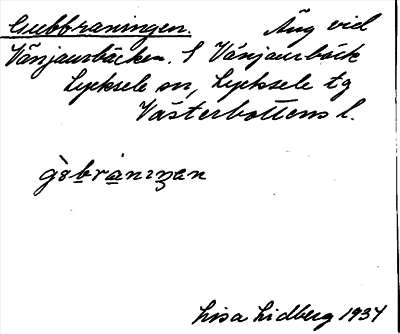 Gubbraningen. Äng vid
Vänjaurbäcken. S Vänjaurbäck
Lycksele sn, Lycksele tg
Västerbottens l.
Lisa Lidberg 1934